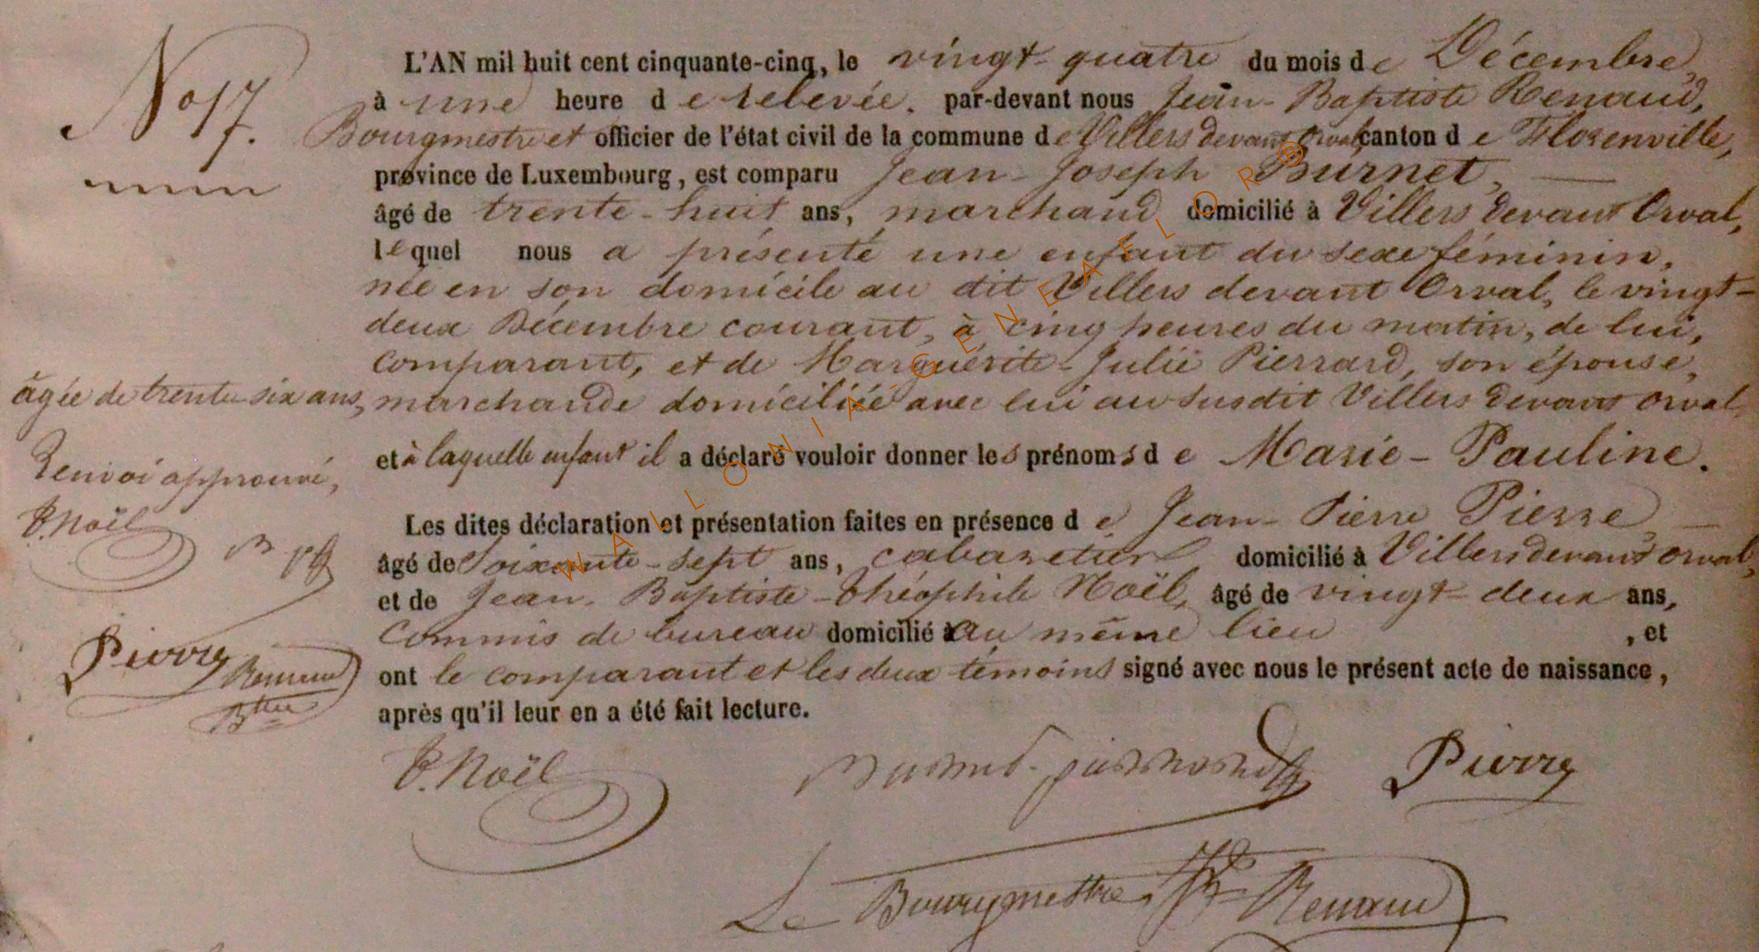 No 17.
L'AN mil huit cent cinquante-cinq, le vingt-quatre du mois de Décembre,
à une heure de relevée. par-devant nous Jean-Baptiste Renaud,
Bourgmestre et officier de l'état civil de la commune de Villers devant Orval, canton de Florenville,
province de Luxembourg, est comparu Jean-Joseph Burnet,
âgé de trente-huit ans, marchand domicilié à Villers devant Orval,
lequel nous a présenté une enfant du sexe féminin,
née en son domicile au dit Villers devant Orval, le vingt-
deux Décembre courant, à cinq heures du matin, de lui,
comparant, et de Marguérite-Julie Pierrard, son épouse,
âgée de trente six ans, marchande domiciliée avec lui au susdit Villers devant Orval
et à laquelle enfant il a déclaré vouloir donner les prénoms de Marie-Pauline.
Renvoi approuvé,
T. Noël
Pierre
Renaud
Btte
Les dites déclaration et présentation faites en présence de Jean-Pierre Pierre
âgé de Soixante-sept ans, cabaretier domicilié à Villers devant Orval,
et de Jean-Baptiste-Théophile Noël, âgé de vingt-deux ans,
Commis de bureau domicilié au même lieu, et
ont le comparant et les deux témoins signé avec nous le présent acte de naissance,
après qu'il leur en a été fait lecture.
T. Noël Pierre
Le Bourgmestre, Renaud
WALLONIA-GENEALOR®